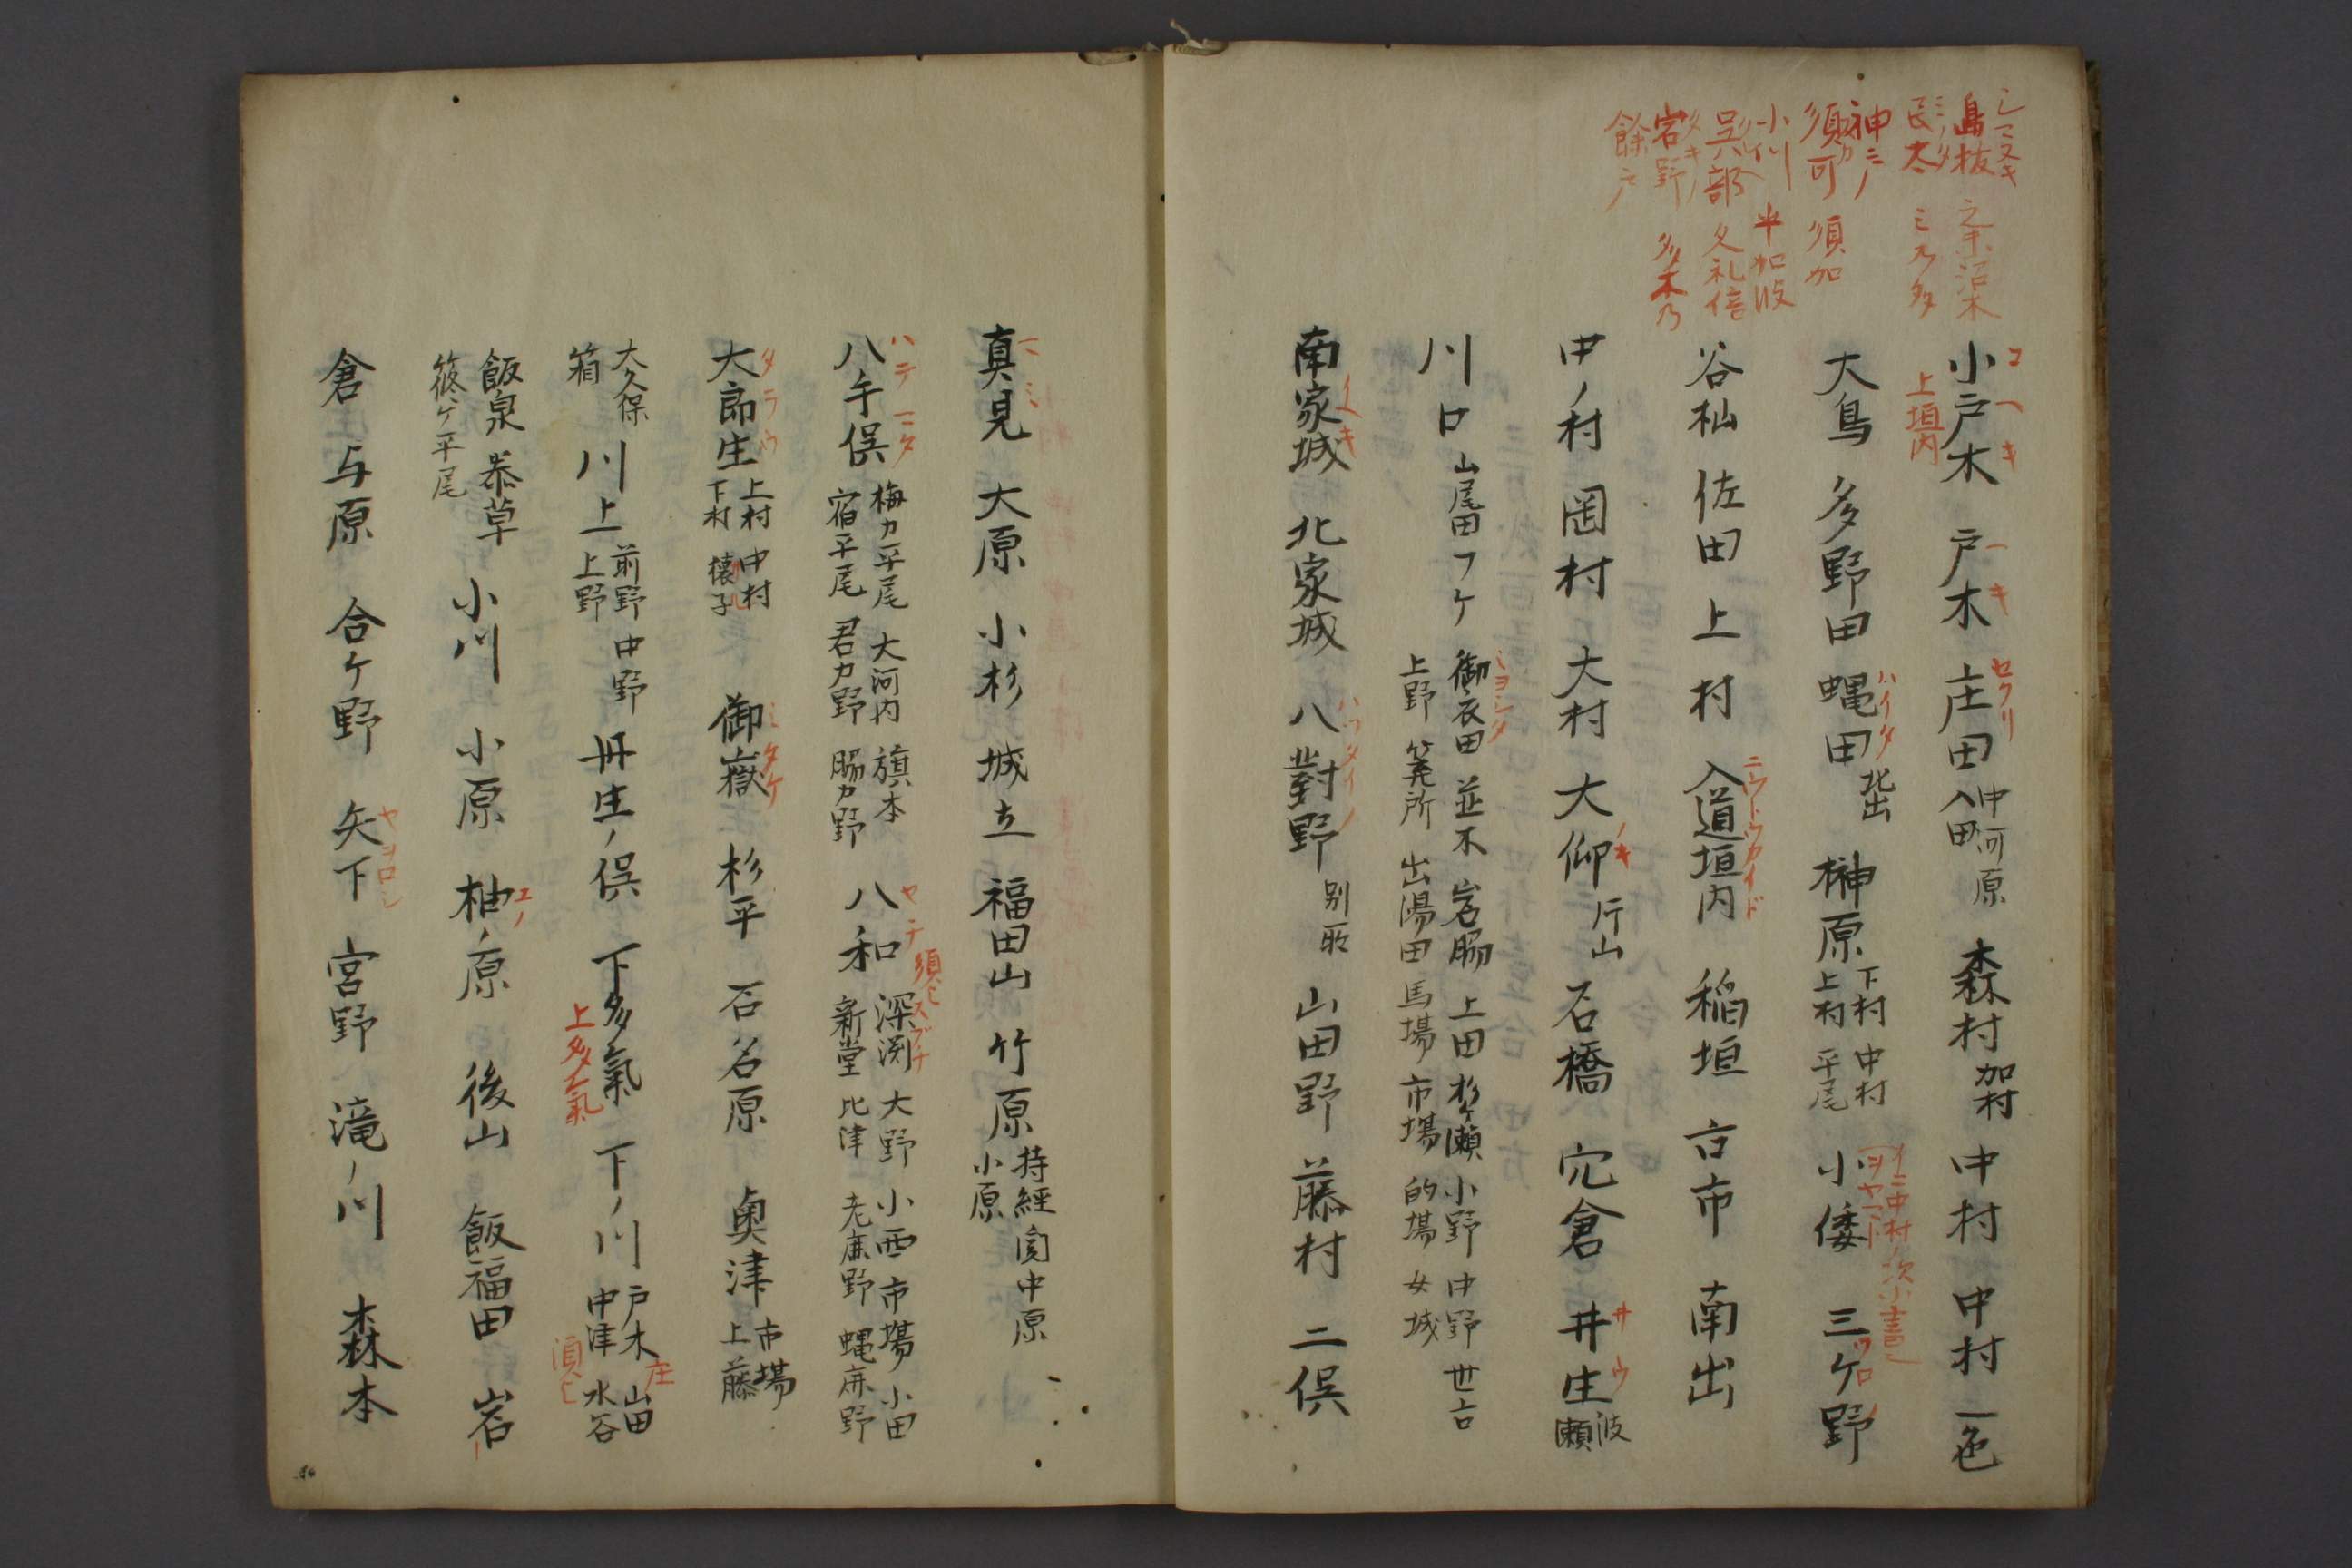 シマヌキ
島抜 之末沼木
ミノタ
民太 ミノ多
神戸
須可 須加
小川 乎加波
呉部 久礼倍
宕野 多木乃
餘戸
小戸木 戸木 庄田 中河原 八田 森村 加村 中村 中村 一色
コヘキ ヘキ セクリ
上垣内
大鳥 多野田 蝿田 北出 榊原 下村 中村 上村 平尾 小倭 三ケ野
ハイタ ヲヤマト
谷杣 佐田 上村 入道垣内 稲垣 古市 南出
ニウトウカイド
中ノ村 岡村 大村 大仰 片山 石橋 穴倉 井生 波瀬
ノキ 井ウ
川口 山尾田 フケ 御衣田 並木 岩脇 上田 杉ケ瀬 小野 中野 世古
ミヨシタ
上野 筭所 出湯田 馬場 市場 的場 女城
南家城 北家城 八對野 別所 山田野 藤村 二俣
イヘキ ハツタイノ
真見 大原 小杉 城立 福田山 竹原 持經 中原 小原
マミ
八手俣 梅カ平尾 大河内 旗本 宿平尾 君カ野 脇カ野 八和 深渕 大野 小西 市場 小田 新堂 比津 老鹿野 蝿麻野
ハテマタ ヤチ 須ヒ スブチ
大郎生 上村 中村 下村 御嶽 杉平 石名原 奥津 市場 上藤
タラウ ミタケ
大久保 箱 川上 前野 中野 上野 丹生ノ俣 下多氣 下ノ川 戸木 山田 中津 水谷
上多氣
飯泉 小川 小原 柚ノ原 後山 飯福田 岩
エノ
篠ケ平尾
倉 与原 合ケ野 矢下 宮野 滝ノ川 森本
ヤヲロシ